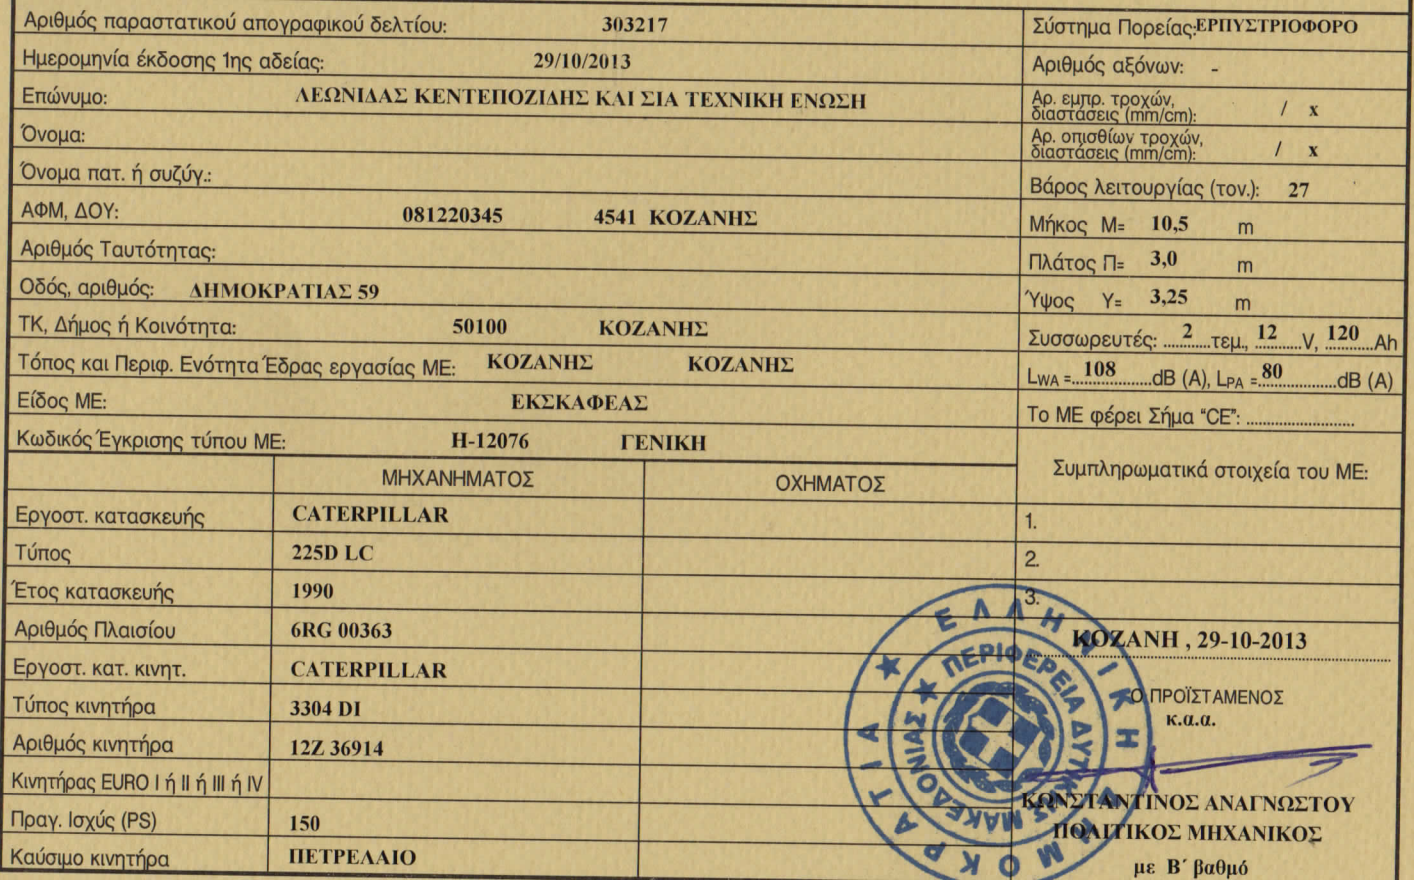 Αριθμός παραστατικού απογραφικού δελτίου: 303217
Ημερομηνία έκδοσης 1ης αδείας: 29/10/2013
Επώνυμο: ΛΕΩΝΙΔΑΣ ΚΕΝΤΕΠΟΖΙΔΗΣ ΚΑΙ ΣΙΑ ΤΕΧΝΙΚΗ ΕΝΩΣΗ
Όνομα:
Όνομα πατ. ή συζύγ.:
ΑΦΜ, ΔΟΥ: 081220345 4541 ΚΟΖΑΝΗΣ
Αριθμός Ταυτότητας:
Οδός, αριθμός: ΔΗΜΟΚΡΑΤΙΑΣ 59
ΤΚ, Δήμος ή Κοινότητα: 50100 ΚΟΖΑΝΗΣ
Τόπος και Περιφ. Ενότητα Έδρας εργασίας ΜΕ: ΚΟΖΑΝΗΣ ΚΟΖΑΝΗΣ
Είδος ΜΕ: ΕΚΣΚΑΦΕΑΣ
Κωδικός Έγκρισης τύπου ΜΕ: Η-12076 ΓΕΝΙΚΗ
ΜΗΧΑΝΗΜΑΤΟΣ ΟΧΗΜΑΤΟΣ
Εργοστ. κατασκευής CATERPILLAR
Τύπος 225D LC
Έτος κατασκευής 1990
Αριθμός Πλαισίου 6RG 00363
Εργοστ. κατ. κινητ. CATERPILLAR
Τύπος κινητήρα 3304 DI
Αριθμός κινητήρα 12Z 36914
Κινητήρας EURO I ή II ή III ή IV
Πραγ. Ισχύς (PS) 150
Καύσιμο κινητήρα ΠΕΤΡΕΛΑΙΟ
Σύστημα Πορείας: ΕΡΠΥΣΤΡΙΟΦΟΡΟ
Αριθμός αξόνων: -
Αρ. εμπρ. τροχών,
διαστάσεις (mm/cm): / x
Αρ. οπισθίων τροχών,
διαστάσεις (mm/cm): / x
Βάρος λειτουργίας (τον.): 27
Μήκος Μ= 10,5 m
Πλάτος Π= 3,0 m
Ύψος Υ= 3,25 m
Συσσωρευτές: 2 τεμ., 12 V, 120 Ah
LWA = 108 dB (A), LPA = 80 dB (A)
Το ΜΕ φέρει Σήμα “CE”: ..........
Συμπληρωματικά στοιχεία του ΜΕ:
1.
2.
3.
ΚΟΖΑΝΗ , 29-10-2013
Ο ΠΡΟΪΣΤΑΜΕΝΟΣ
κ.α.α.
ΚΩΝΣΤΑΝΤΙΝΟΣ ΑΝΑΓΝΩΣΤΟΥ
ΠΟΛΙΤΙΚΟΣ ΜΗΧΑΝΙΚΟΣ
με Β΄ βαθμό
ΕΛΛΗΝΙΚΗ ΜΟΚΡΑΤΙΑ
ΠΕΡΙΦΕΡΕΙΑ ΔΥΤΙΚΗΣ ΜΑΚΕΔΟΝΙΑΣ